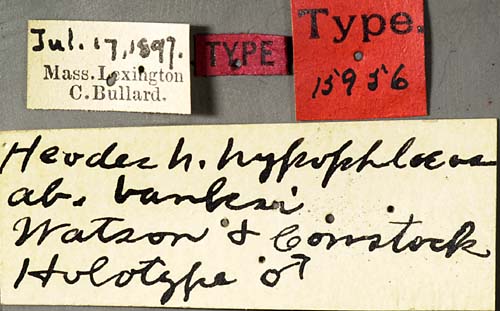 Jul. 17, 1897.
Mass. Lexington
C. Bullard.
TYPE
Type.
15956
Heodes h. hypophlaeas
ab. banksi
Watson & Comstock
Holotype ♂